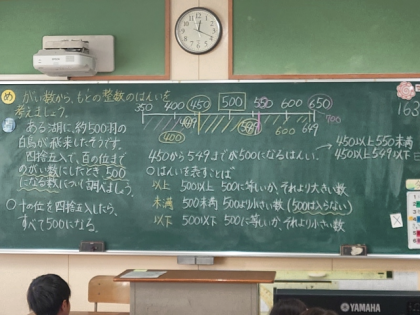 め がい数から、もとの整数のはんいを
考えましょう。
あるみ湖に、約500羽の
白鳥が飛来したそうです。
四捨五入で、百の位まで
のがい数にしたとき、500
になる数について調べましょう。
○十の位を四捨五入したら、
すべて500になる。
350 400 450 500 550 600 650
700
449 549 649
400 600
450から549までが500になるはんい。
450以上550未満
450以上549以下
○はんいを表すことば
以上 500以上 500に等しいか、それより大きい数
未満 500未満 500より小さい数(500は入らない)
以下 500以下 500に等しいか、それより小さい数
163
YAMAHA